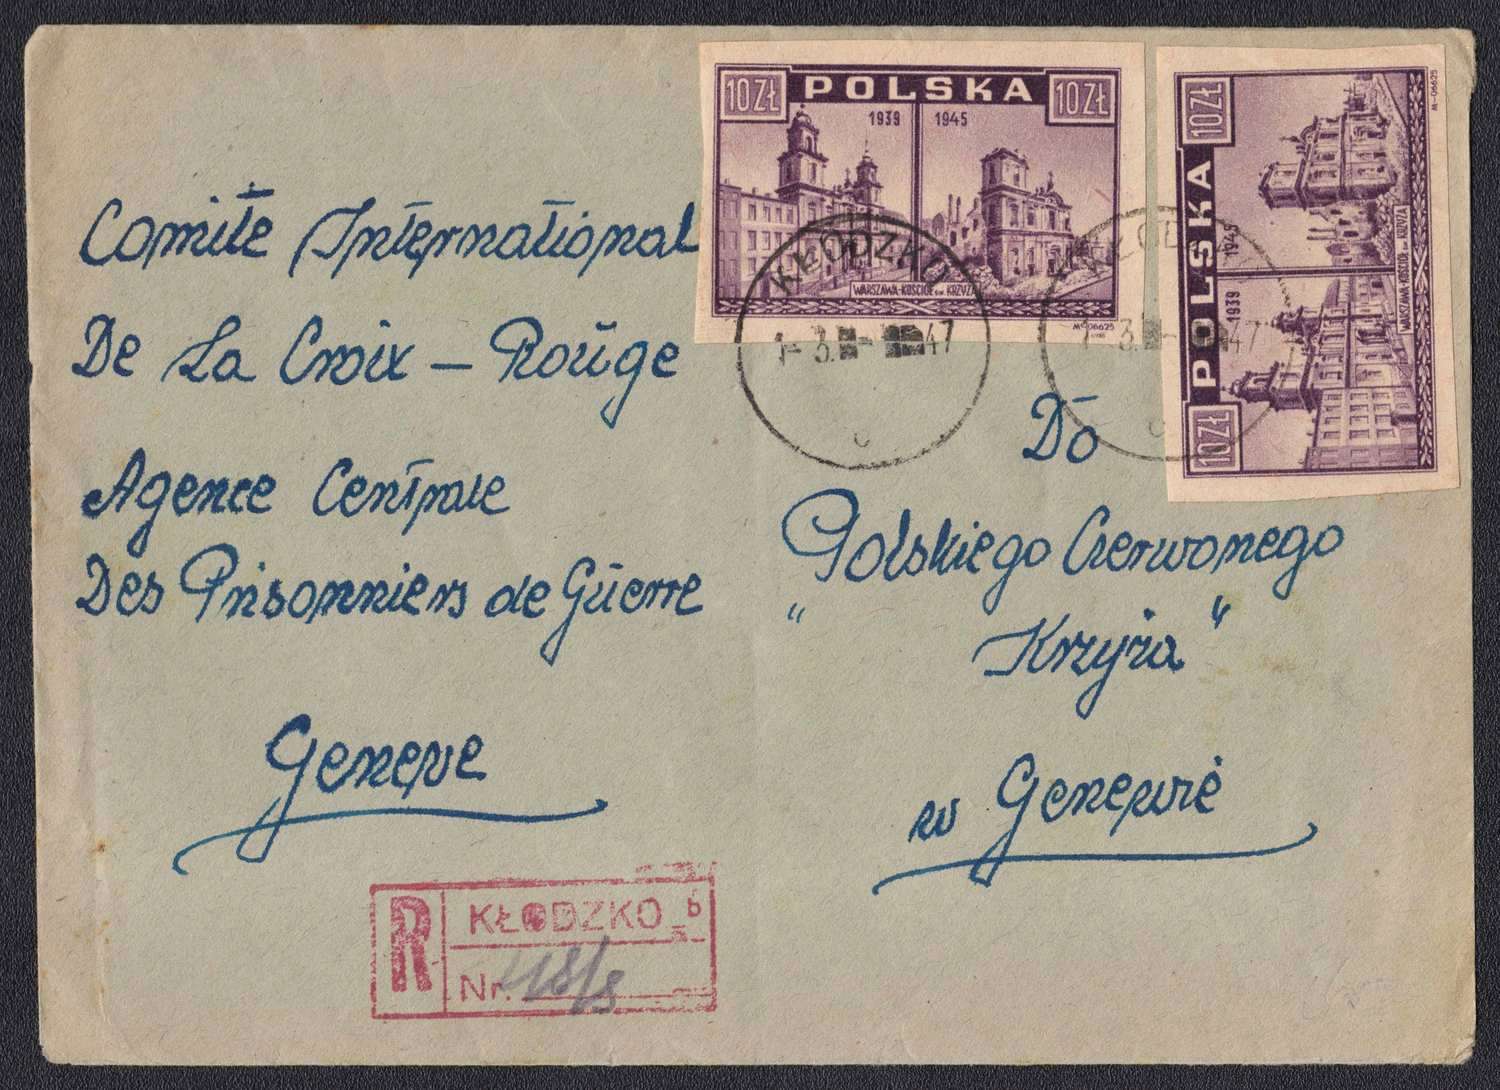 10ZŁ POLSKA 10ZŁ
1939 1945
WARSZAWA-KOŚCIÓŁ św. KRZYŻA
M-06625
10ZŁ POLSKA 10ZŁ
1939 1945
WARSZAWA-KOŚCIÓŁ św. KRZYŻA
M-06625
KŁODZKO
1-3. 47
c
3. 47
c
Comite International
De La Croix – Rouge
Agence Centrale
Des Prisonniers de Guerre
Geneve
Do
Polskiego Czerwonego
" Krzyża "
w Genewie
R KŁODZKO b
Nr.